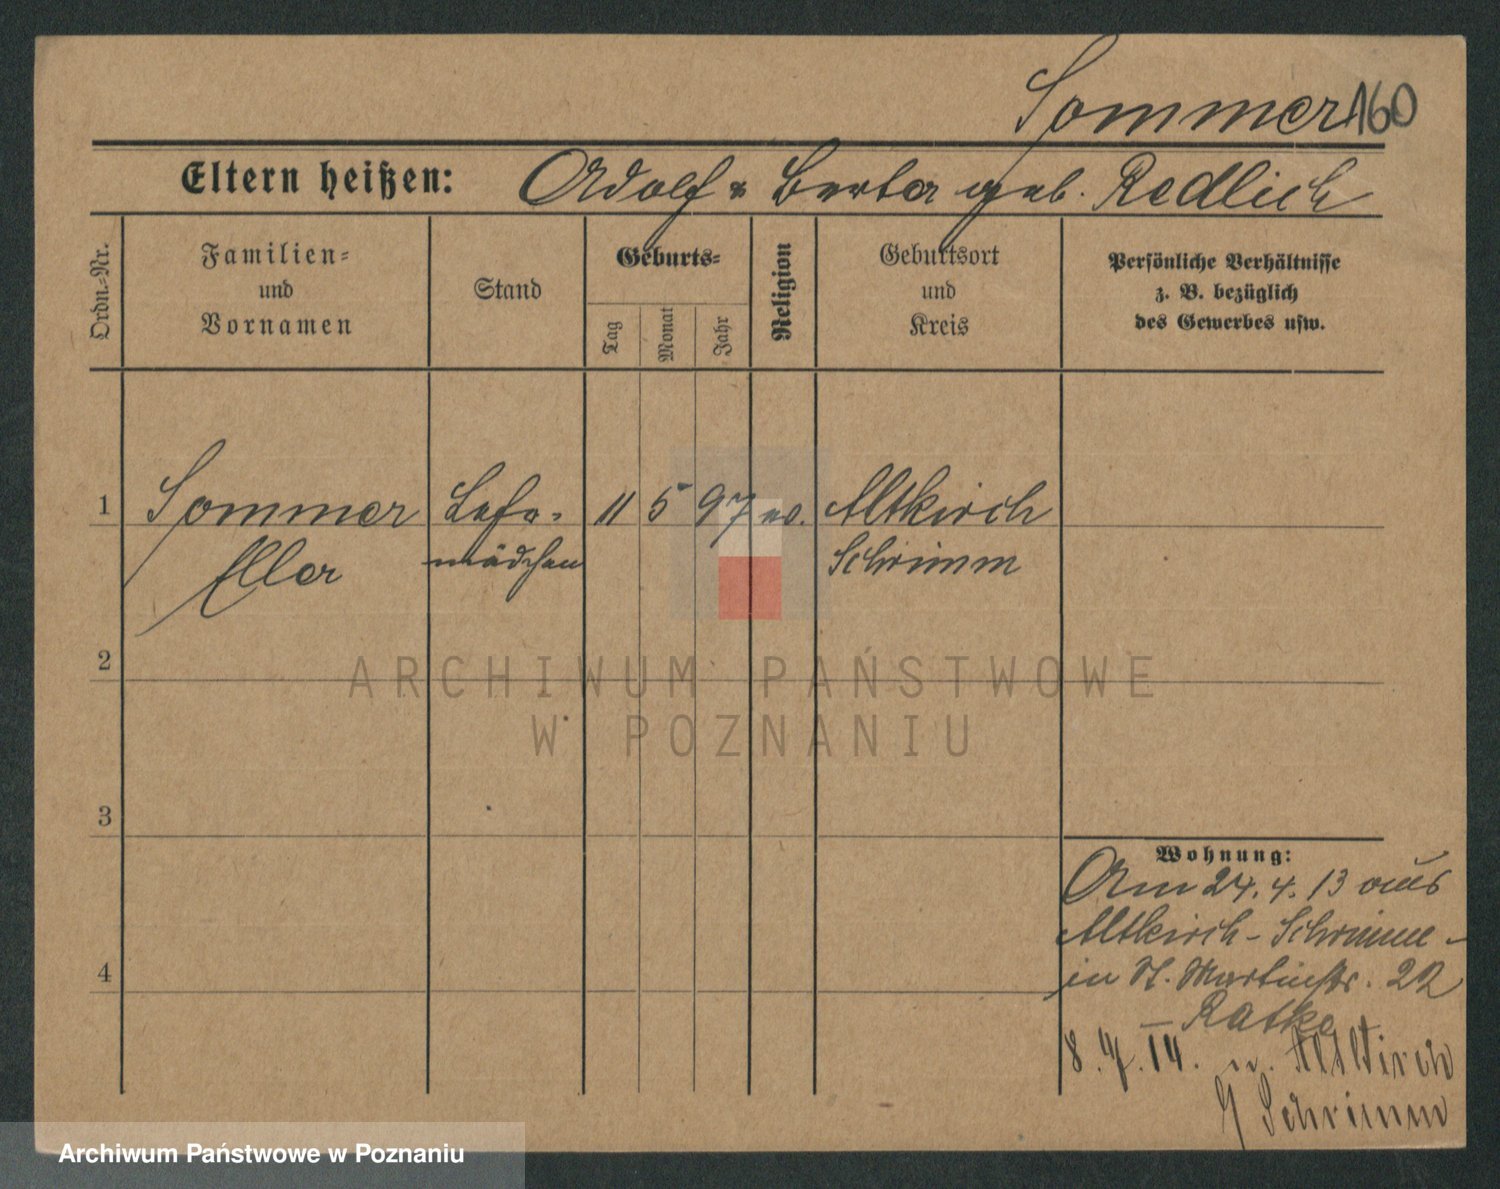 Sommer 160
Eltern heißen: Adolf u Berta geb. Redlich
Ordn.-Nr.
Familien-
und
Vornamen
Stand
Geburts-
Tag
Monat
Jahr
Religion
Geburtsort
und
Kreis
Persönliche Verhältnisse
z. B. bezüglich
des Gewerbes usw.
1 Sommer Lehr- 11 5 97 ev. Altkirch
Ella mädchen Schrimm
2
3
4
Wohnung:
Am 24.4.13 aus
Altkirch - Schrimm -
in St. Martinstr. 22
- Ratke
8. 14. n. Altkirch
Schrimm
ARCHIWUM PAŃSTWOWE
W POZNANIU
Archiwum Państwowe w Poznaniu